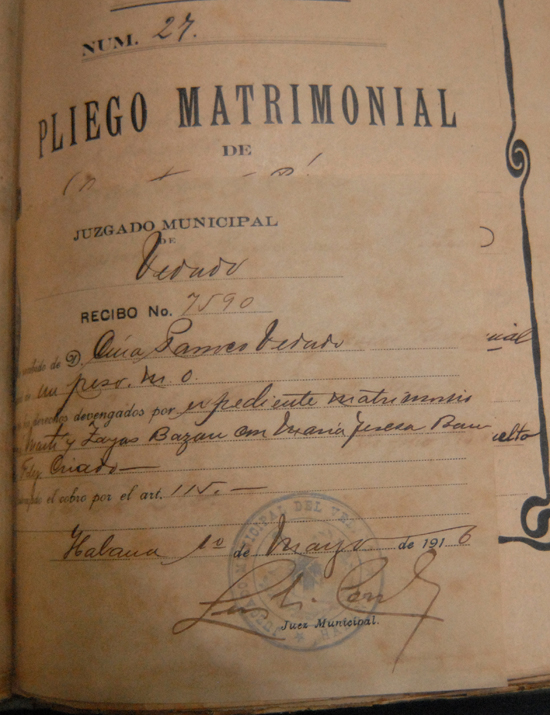 NUM. 27.
PLIEGO MATRIMONIAL
DE
JUZGADO MUNICIPAL
DE
Vedado
RECIBO No. 7590
de Cura Parroco Vedado
un peso. M. O.
derechos devengados por expediente matrimonio
Marti y Zayas Bazan con Maria Teresa Ban
Criado
el cobro por el art. 115.
Habana 10 de Mayo de 1916
Juez Municipal.